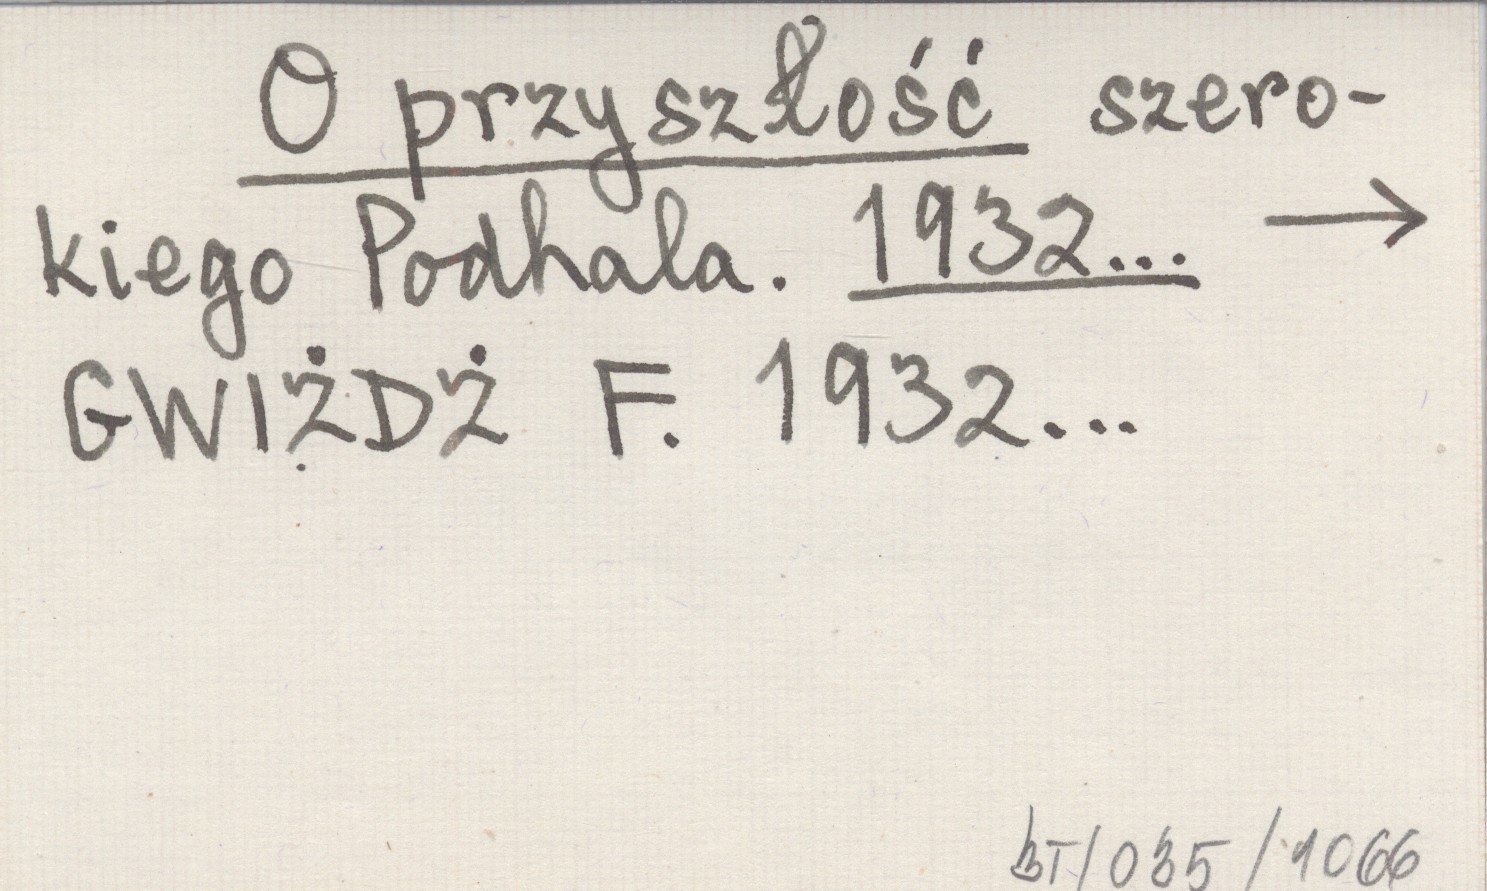 O przyszłość szero-
kiego Podhala. 1932... →
GWIŻDŻ F. 1932...
BT/035/1066